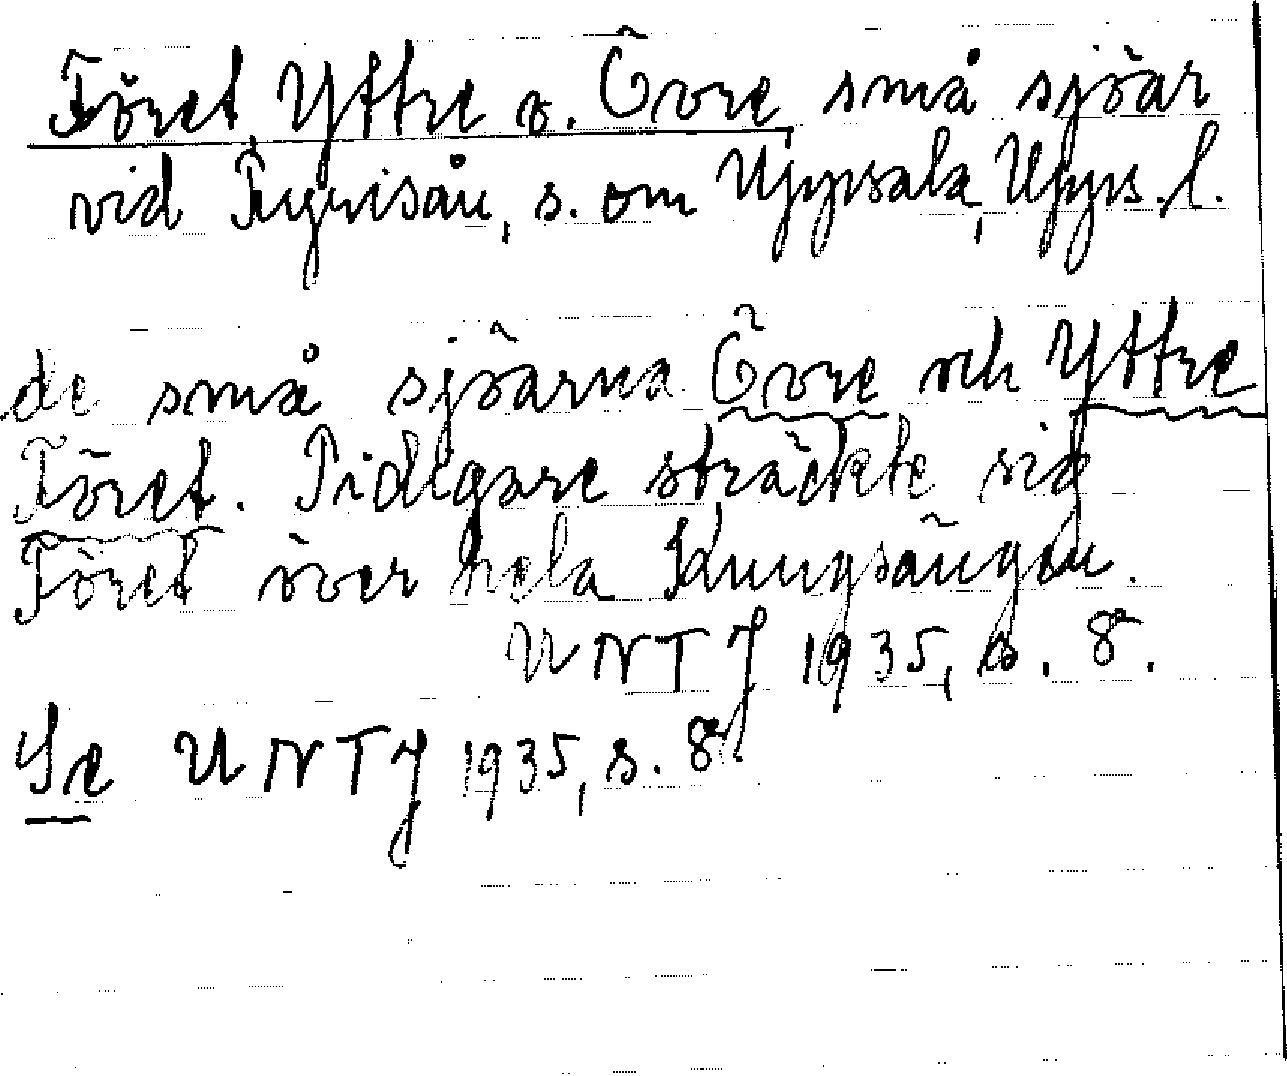 Föret, Yttre o. Övre små sjöar
vid Fyrisån, s. om Uppsala, Upps. l.
de små sjöarna Övre och Yttre
Föret. Tidigare sträckte sig
Föret över hela Kungsängen.
UNTJ 1935, s. 8.
Se UNTJ 1935, s. 8